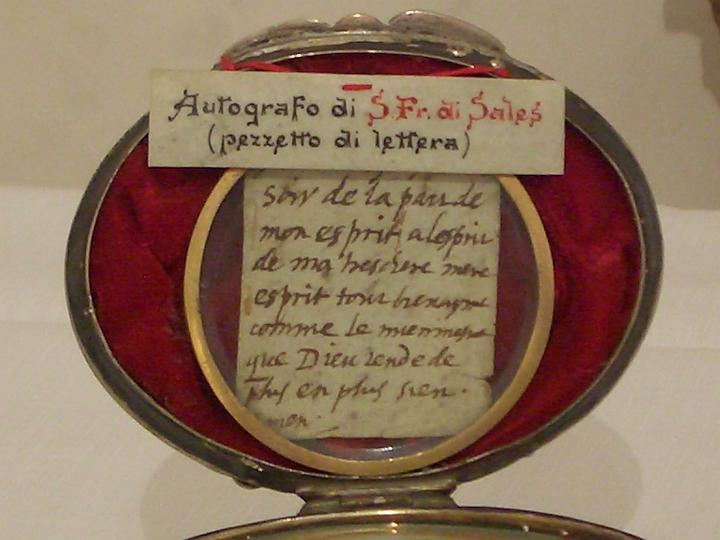 Autografo di S. Fr. di Sales
(pezzetto di lettera)
soir de la part de
mon esprit a lesprit
de ma treschere mere
esprit tout
comme le mien mesme
que Dieu rende de
plus en plus sien.
men.